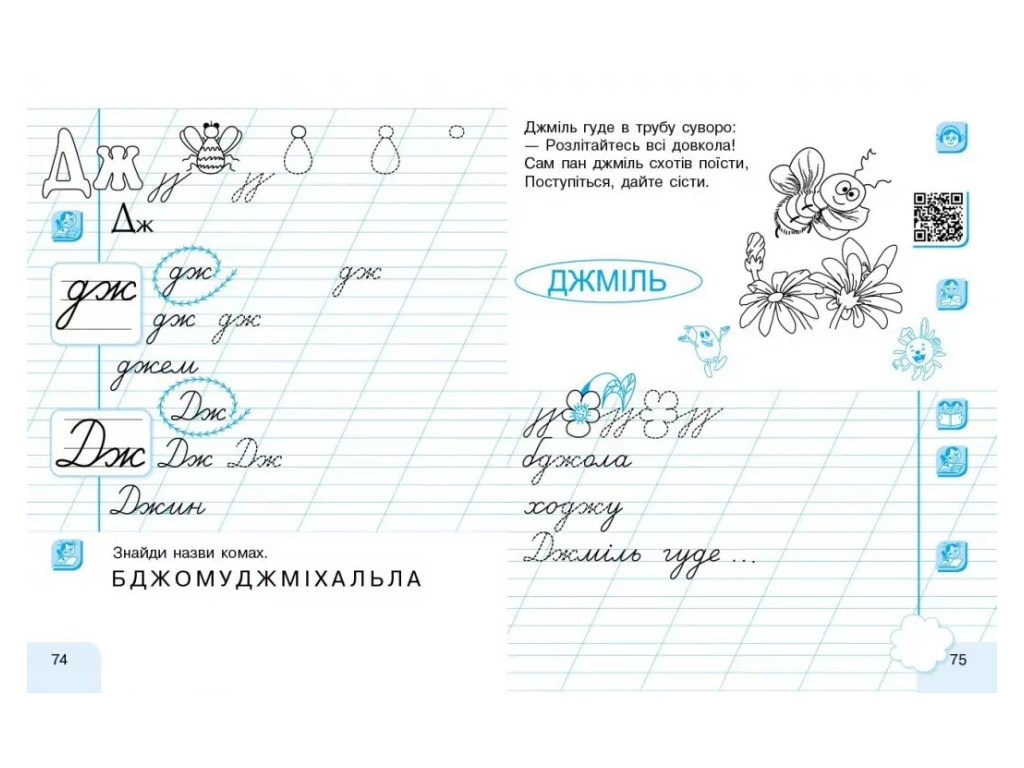 Дж
Дж
дж дж дж
дж дж
джем
Дж
Дж Дж Дж
Джин
Знайди назви комах.
БДЖОМУДЖМІХАЛЬЛА
74
Джміль гуде в трубу суворо:
— Розлітайтесь всі довкола!
Сам пан джміль схотів поїсти,
Поступіться, дайте сісти.
ДЖМІЛЬ
бджола
ходжу
Джміль гуде ...
75